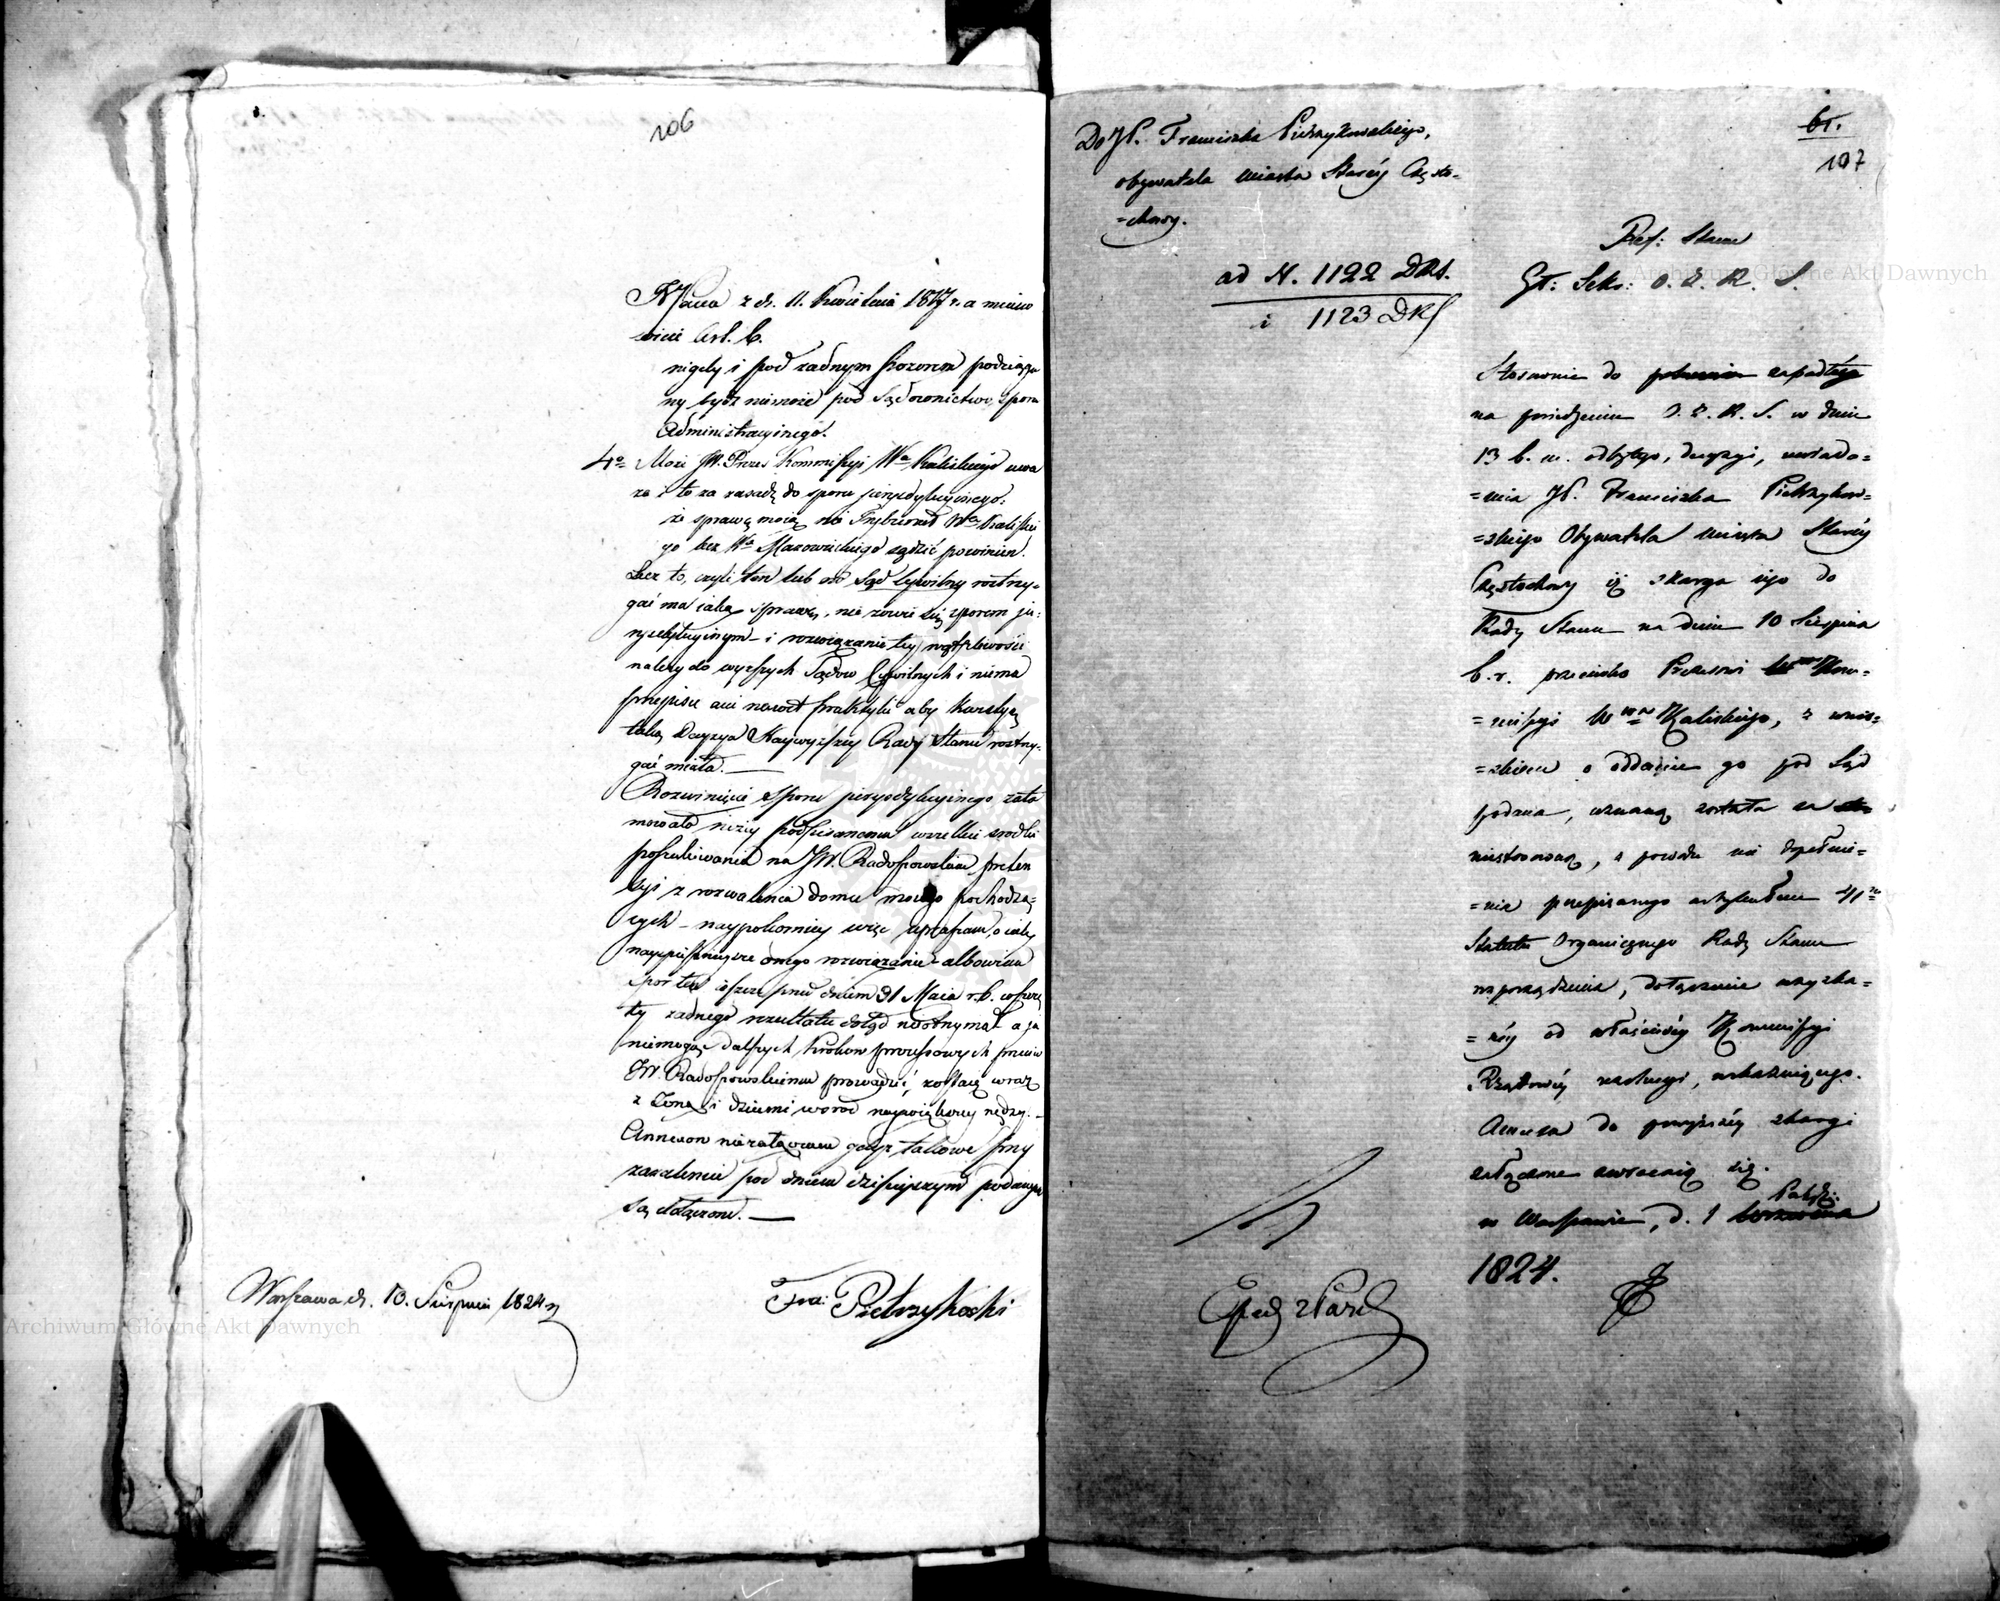 106
Prawa z d. 11. Kwietnia 1817 r. a miano
wicie Art. 6.
nigdy i pod żadnym pozorem podciąga
ny bydź niemoże pod Sądownictwo sporu
Administracyinego.
4o Może JW. Prezes Kommissyi Wa Kaliskiego uwa
ża i to za zasadę do sporu jurysdykcyinego:
że sprawę moią nie Trybunał Wa Kaliski
go lecz Wa Mazowieckiego sądzić powinien.
Lecz to, czyli ten lub ów Sąd Cywilny rostrzy-
gać ma iaką sprawę, nie zowie się sporem ju-
rysdykcyinym - i rozwiązanie tey wątpliwości
należy do wyższych Sądów Cywilnych i niema
przepisu ani nawet praktyki aby kwestyą
taką Decyzya Naywyższey Rady Stanu rostrzy-
gać miała. —
Rozwinięcie sporu jurysdykcyinego zata
mowało niżey podpisanemu wszelkie srodki
poszukiwania na JW. Radoszowskim preten
syi z rozwalenia domu moiego pochodzą-
cych - naypokorniey więc upraszam, o iak
nayspieszniejsze onego rozwiązanie - albowiem
spor ten ieszcze przed dniem 31 Maia r. b. wszczę
ty żadnego rezultatu dotąd nieotrzymał a ja
niemogąc dalszych kroków processowych przeciw
JW. Radoszowskiemu prowadzić, zostaię wraz
z Żoną i dziećmi wśród naywiększey nędzy. —
Annexow niezałączam gdyż takowe przy
zażaleniu pod dniem dzisieyszym podanym
są dołączone. —
Warszawa d. 10. Sierpnia 1824 r
Fra: Pietrzykoski
61.
107
Do JP. Franciszka Pietrzykowskiego,
obywatela miasta Staréy Często-
=chowy.
ad N. 1122 DRS.
i 1123 DRS
Ref: Stanu
Gł: Sekr: O. Z. R. S.
Stosownie do zapadłéy
na posiedzeniu O. Z. R. S. w dniu
13 b. m. odbytego, decyzyi, uwiado=
=mia JP. Franciszka Pietrzykow=
=skiego Obywatela miasta Staréy
Częstochowy iż skarga iego do
Rady Stanu na dniu 10 Sierpnia
b. r. przeciwko Prezesowi Kom=
=missyi Wwa Kaliskiego, z wnio=
=skiem o oddanie go pod Sąd
podana, uznaną została za
niestosowną, z powodu nie dopełnie=
=nia przepisanego artykułem 41m
Statutu Organicznego Rady Stanu
rozporządzenia, dołączenia uzyska=
=néy od właściwéy Kommissyi
Rządowéy rezolucyi,
Annexa do powyższéy skargi
załączone zwracaią się.
w Warszawie, d. 1 Paźdz:
1824.